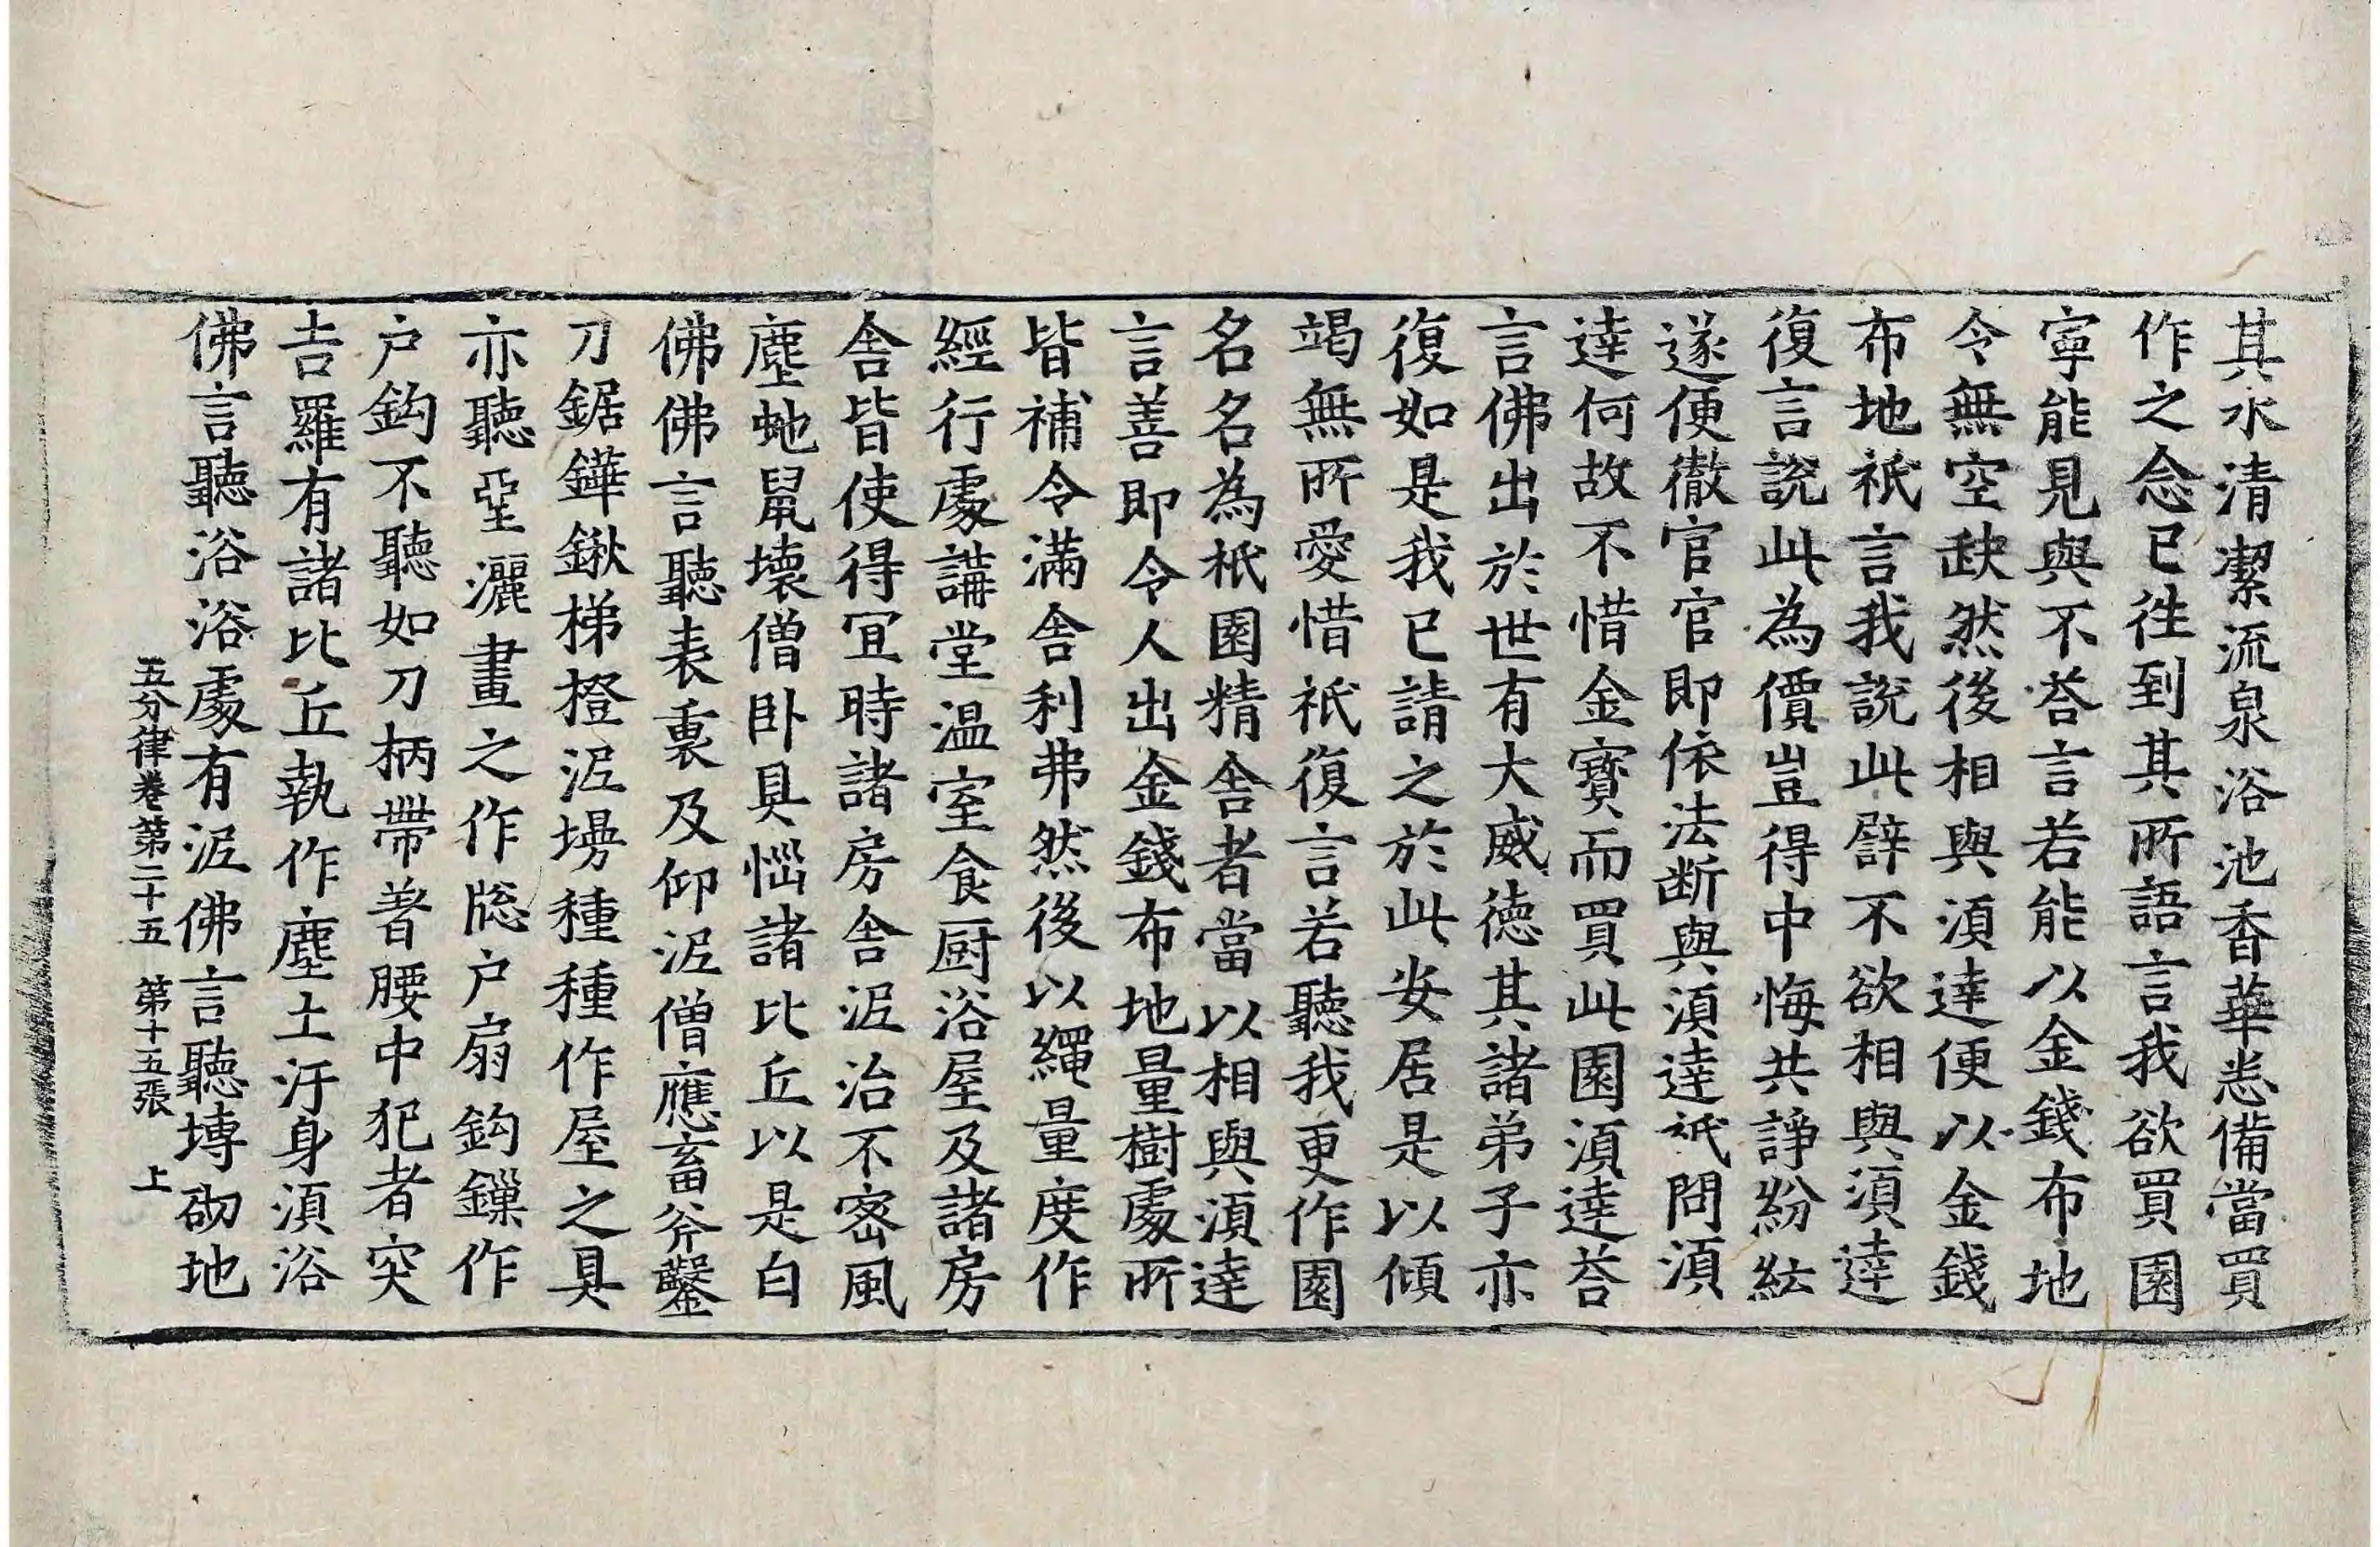 其水清潔流泉浴池香華悉備當買
作之念已往到其所語言我欲買園
寧能見與不荅言若能以金錢布地
令無空缺然後相與湏達便以金錢
布地祇言我說此譬不欲相與湏達
復言說此為價豈得中悔共諍紛紜
遂便徹官官即依法断與湏達祇問湏
達何故不惜金寶而買此園湏達荅
言佛出於世有大威德其諸弟子亦
復如是我已請之於此安居是以傾
竭無所愛惜祇復言若聽我更作園
名名為祇園精舍者當以相與湏達
言善即令人出金錢布地量樹處所
皆補令滿舍利弗然後以繩量度作
經行處講堂温室食厨浴屋及諸房
舍皆使得宜時諸房舍泥治不密風
塵虵鼠壞僧卧具惱諸比丘以是白
佛佛言聽表裏及仰泥僧應畜斧鑿
刀鋸鏵鍬梯橙泥塲種種作屋之具
亦聽堊灑畫之作牎户扇鈎鏁作
户鈎不聽如刀柄帶著腰中犯者突
吉羅有諸比丘執作塵土汙身湏浴
佛言聽浴浴處有泥佛言聽塼砌地
五分律卷第二十五 第十五張 上